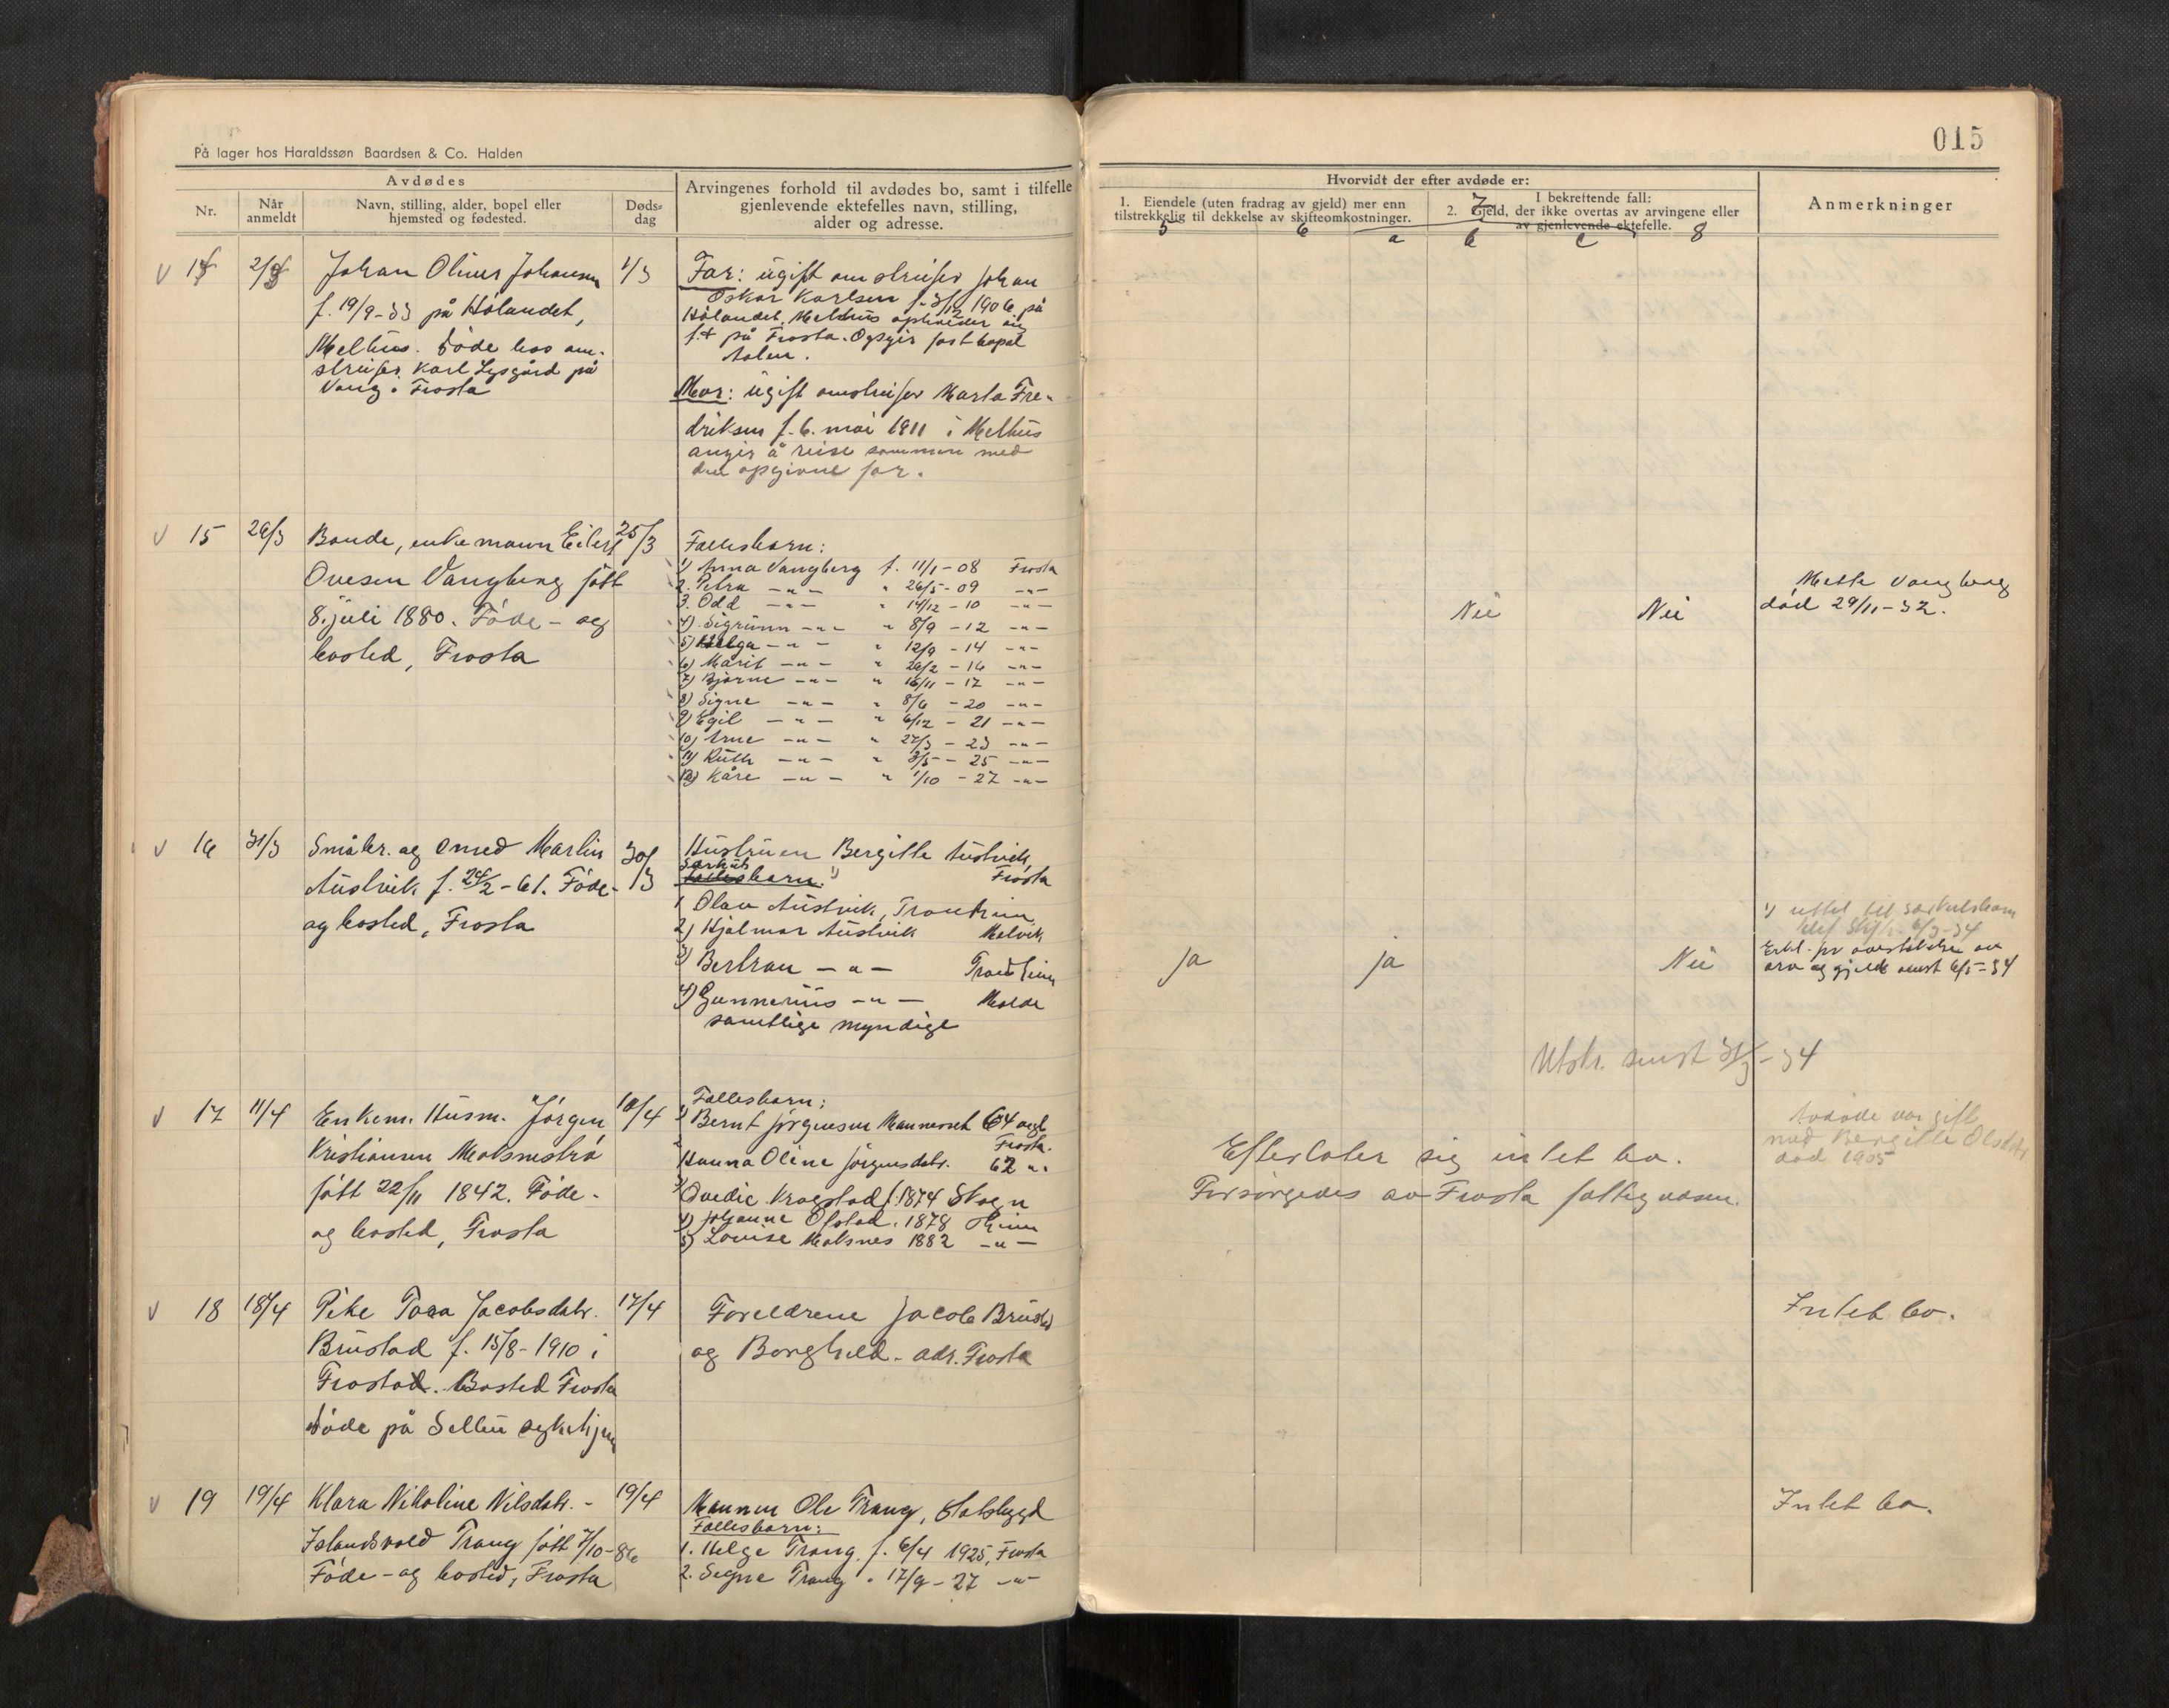 På lager hos Haraldssøn Baardsen & Co. Halden
Avdødes
Nr.
Når anmeldt
Navn, stilling, alder, bopel eller
hjemsted og fødested.
Døds-
dag
Arvingenes forhold til avdødes bo, samt i tilfelle
gjenlevende ektefelles navn, stilling,
alder og adresse.
015
Hvorvidt der efter avdøde er:
1. Eiendele (uten fradrag av gjeld) mer enn
tilstrekkelig til dekkelse av skifteomkostninger.
I bekreftende fall:
2. Gjeld, der ikke overtas av arvingene eller
av gjenlevende ektefelle.
Anmerkninger
5 6 7 a b c 8
14 2/3 Johan Oliver Johansen 1/3
f. 19/9-33 på Hølandet,
Melhus. Døde hos om-
streifer Karl Lysgård på
Vang i Frosta
Far: ugift omstreifer Johan
Oskar Karlsen f. 3/12 1906 på
Hølandet, Melhus opholder sig
f.t. på Frosta. Opgir fast bopel
Ålen.
Mor: ugift omstreifer Marta Fre-
driksen f. 6. mai 1911 i Melhus
angir å reise sammen med
den opgivne far.
15 26/3 Bonde, enkemann Eilert 25/3
Ovesen Vangberg født
8. juli 1880. Føde- og
bosted, Frosta
Fellesbarn:
1) Anna Vangberg f. 11/1-08 Frosta
2. Petra -"- " 26/5-09 -"-
3. Odd -"- " 14/12-10 -"-
4) Sigrunn -"- " 8/9-12 -"-
5) Helga -"- " 12/9-14 -"-
6) Marit -"- " 26/2-16 -"-
7) Bjarne -"- " 16/11-17 -"-
8) Signe -"- " 8/6-20 -"-
9) Egil -"- " 6/12-21 -"-
10) Arne -"- " 27/3-23 -"-
11) Ruth -"- " 3/5-25 -"-
12) Kåre -"- " 1/10-27 -"-
Nei Nei
Mette Vangberg
død 29/11-32.
16 31/3 Småbr. og smed Martin 30/3
Austvik f. 24/2-61. Føde-
og bosted, Frosta
Hustruen Bergitte Austvik,
Frosta
Særkuls
fellesbarn: 1)
1 Olav Austvik, Trondheim
2) Hjalmar Austvik Malvik
3) Bertran -"- Trondheim
4) Gunnerius -"- Molde
samtlige myndige
ja ja Nei
1) uttat til særkulsbarn
Erkl. for overtakelse av
arv og gjeld sendt 6/5-34
Utskr. sendt 31/3-34
17 11/4 Enkem. Husm. Jørgen 10/4
Kristiansen Moksnestrø
født 22/11 1842. Føde-
og bosted, Frosta
Fellesbarn:
1) Bernt Jørgensen Mannsset 64 årgl
Frosta.
2 Hanna Oline Jørgensdatr. 62 "
3) Ovedie Kragstad f. 1874 Skogn
4) Johanne Olstad. 1878 Theim
5) Lovise Moksnes 1882 -"-
Efterlater sig intet bo.
Forsørgedes av Frosta fattigvesen.
Avdøde var gift
med Bergitte Olsdatr
død 1905
18 18/4 Pike Tora Jacobsdatr. 17/4
Brustad f. 15/8-1910 i
Frosta. Bosted Frosta
døde på Selbu sykehjem
Foreldrene Jacob Brustad
og Borghild. adr. Frosta
Intet bo.
19 19/4 Klara Nikoline Nilsdatr. - 19/4
Islandsvold Trang født 7/10-86
Føde- og bosted, Frosta
Mannen Ole Trang, Statsbygd
Fellesbarn:
1. Helge Trang f. 6/4 1925, Frosta
2. Signe Trang " 17/9-27 -"-
Intet bo.